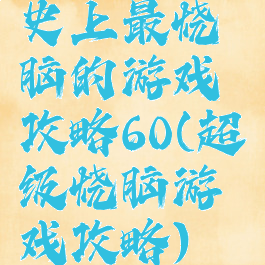 史上最烧
脑的游戏
攻略60(超
级烧脑游
戏攻略)